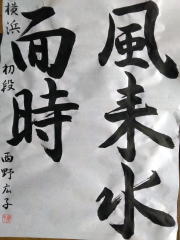 風来水
面時
横浜 初段 西野広子